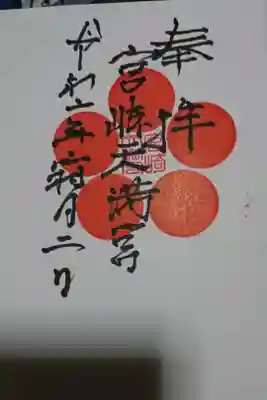 奉拝
宮崎天満宮
令和六年霜月二日